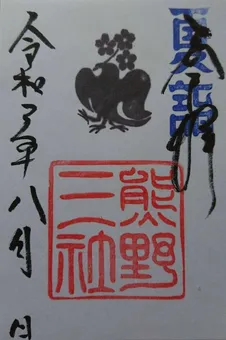 奉拝
夏詣
熊野
三社
令和 年八月 日